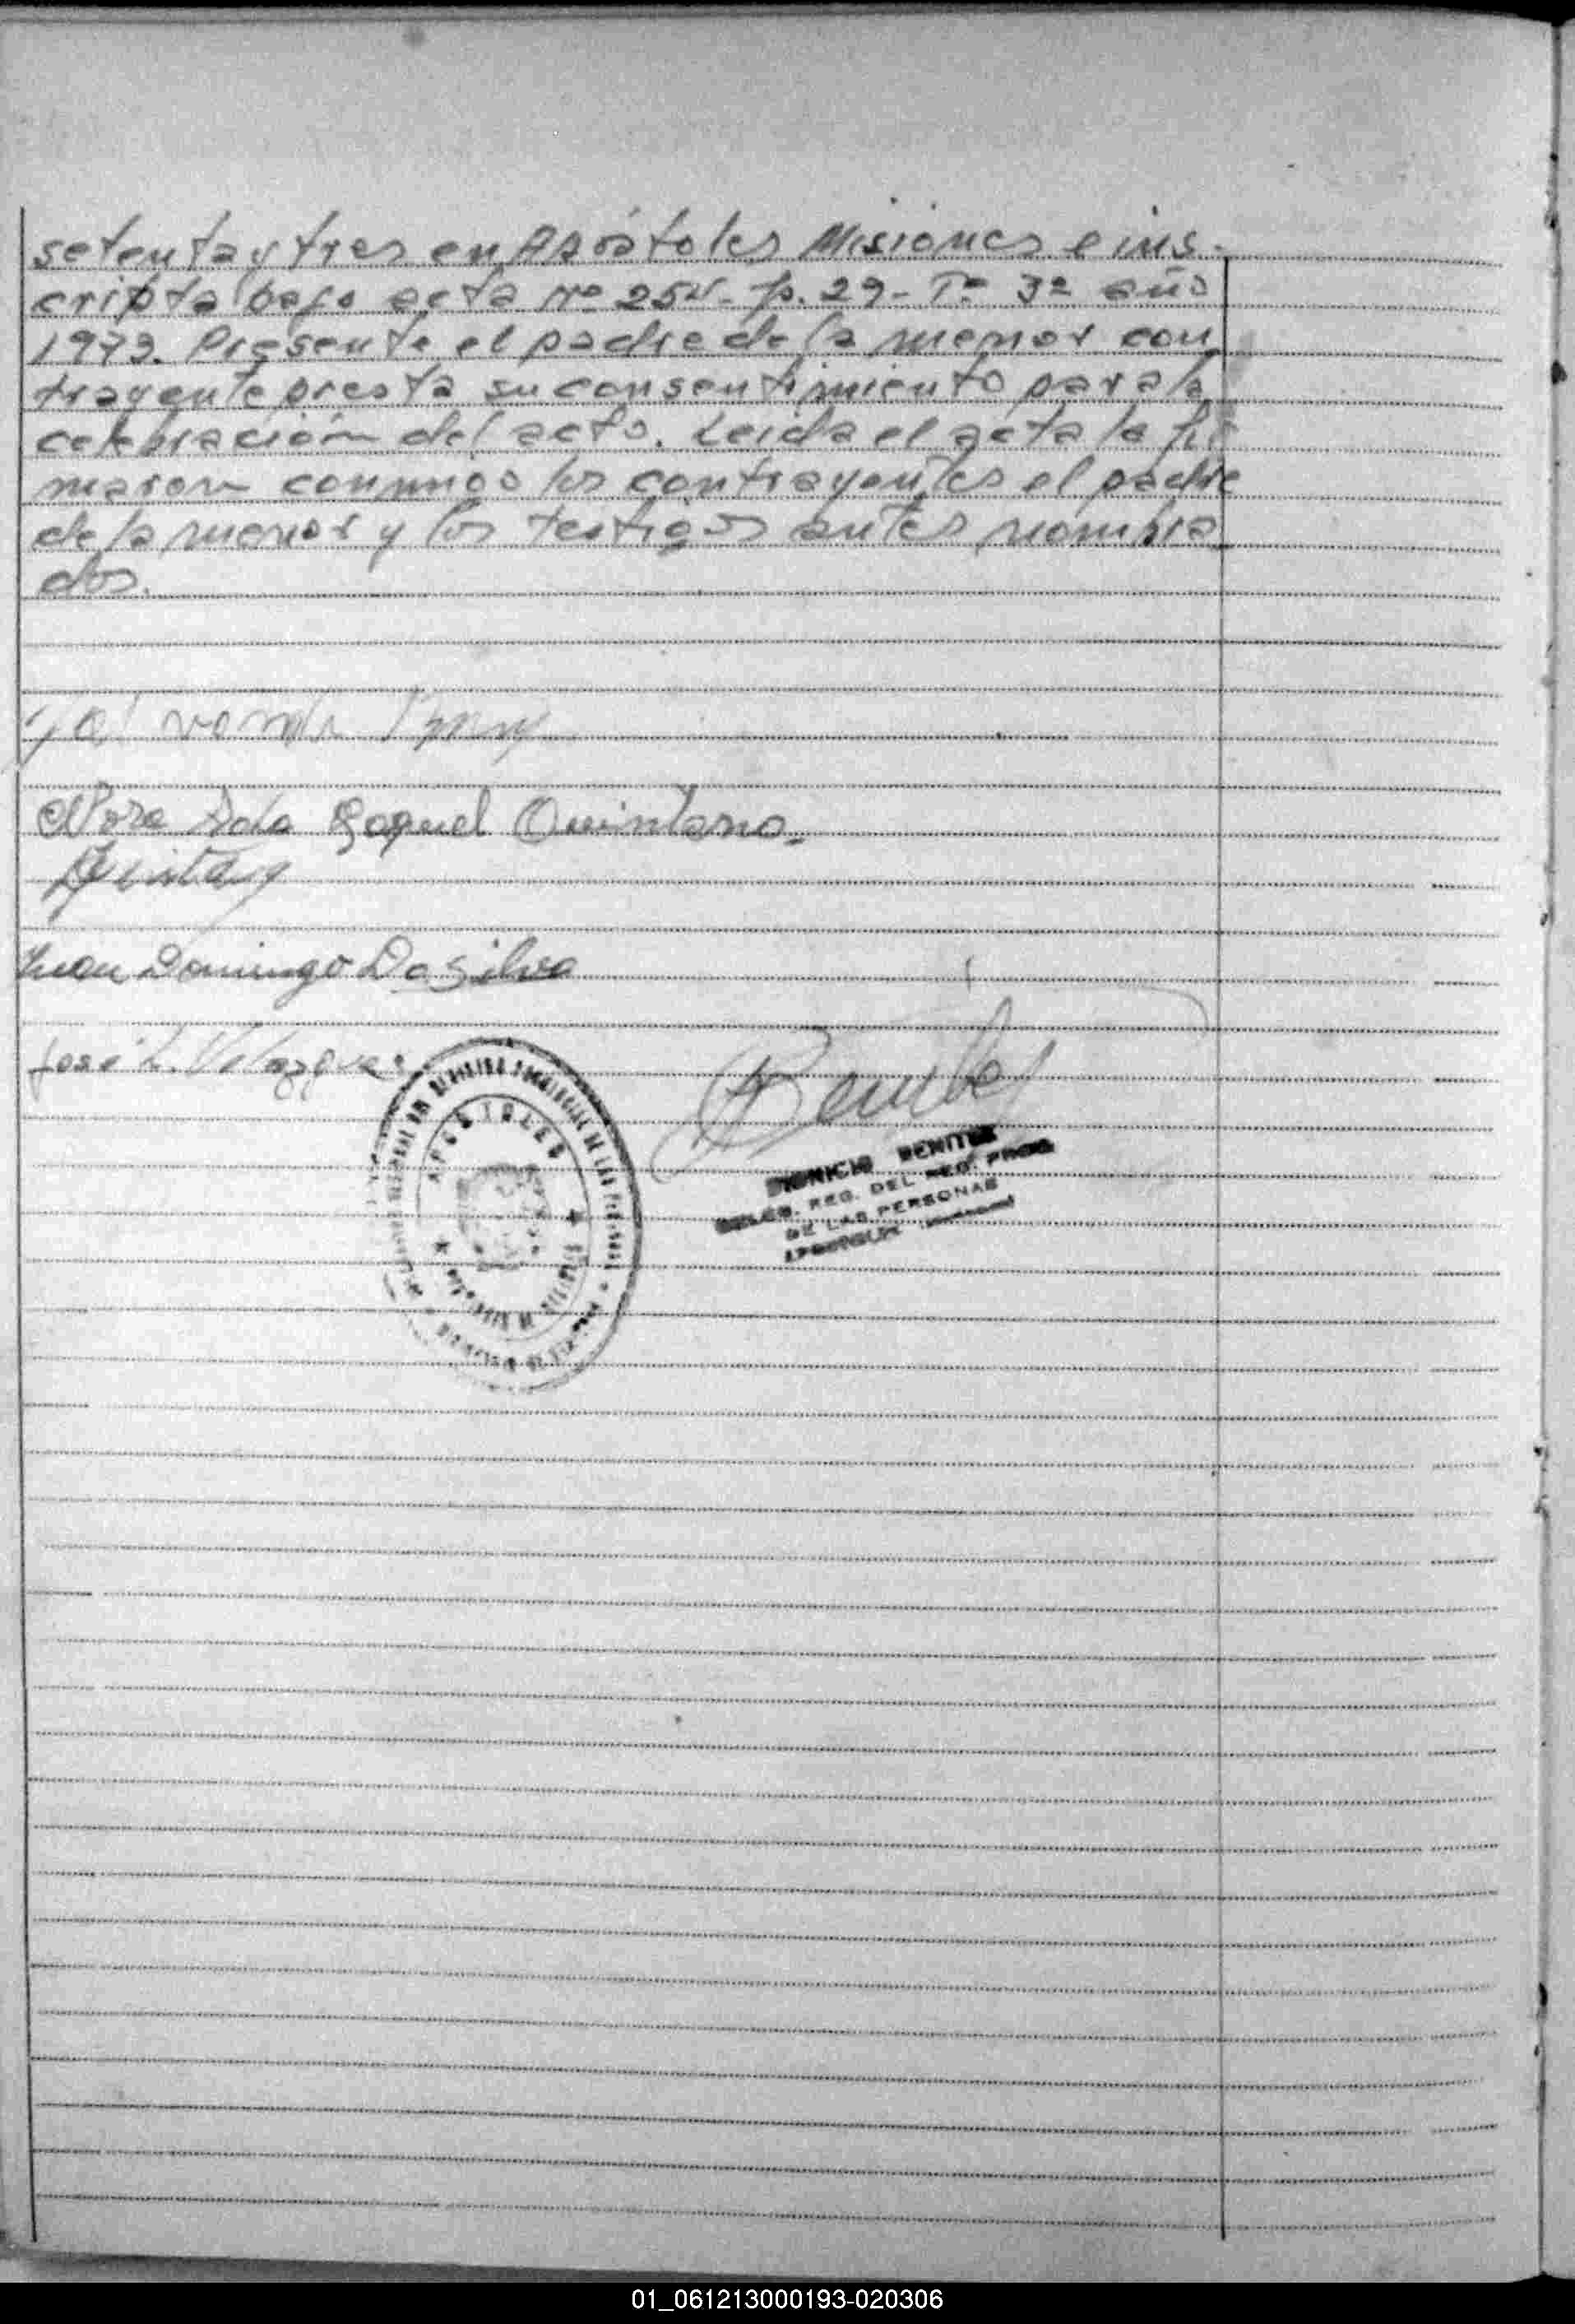 setenta y tres en Apóstoles Misiones e ins-
cripta bajo acta Nº 254- p. 29- Tº 3º año
1973. Presente el padre de la menor con
trayente presta su consentimiento para la
celebración del acto. Leida el acta la fir
maron conmigo los contrayentes el padre
de la menor y los testigos antes nombra
dos.
Nora Ada Raquel Quintana
Juan Domingo Da Silva
José L. Velazquez
APOSTOLES
DIONICIO BENITEZ
REG. DEL REG. PROV.
DE LAS PERSONAS
01_061213000193-020306